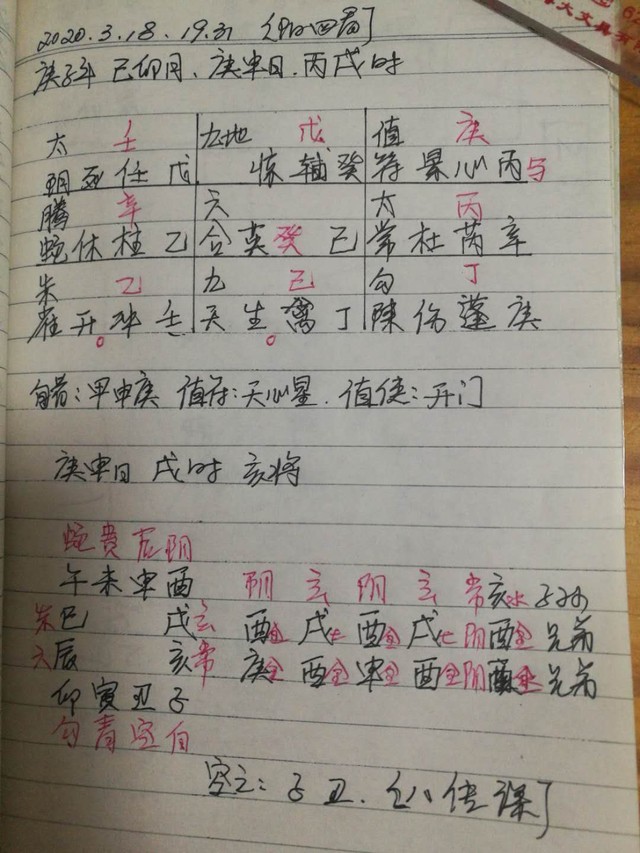 大文具
2020.3.18.19.31
庚子年 己卯月、庚申日.丙戌时
太 壬 九地 戊 值 庚
阴死任戊 惊辅癸 符景心丙与
腾 辛 六 太 丙
蛇休柱乙 合英癸己 常杜芮辛
朱 乙 九 己 勾 丁
雀开冲壬 天生禽丁 陈伤蓬庚
旬首:甲申庚 值符:天心星.值使:开门
庚申日 戌时 亥将
蛇贵后阴
午未申酉 阴玄阴玄 常亥水子孙
朱巳 戌玄 酉金戌土酉金戌土阴酉金兄弟
六辰 亥常 庚金酉金申金酉金阴酉金兄弟
卯寅丑子
勾青空白
空亡:子丑.